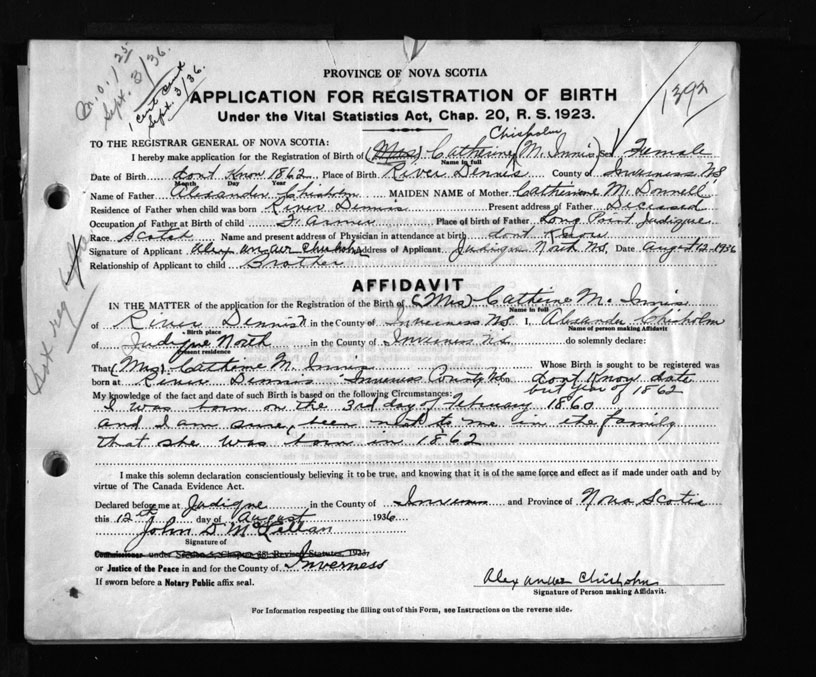 M.O. 1.25
Sept. 3/36.
1 Cert Sent
Sept. 3/36.
1392
PROVINCE OF NOVA SCOTIA
APPLICATION FOR REGISTRATION OF BIRTH
Under the Vital Statistics Act, Chap. 20, R. S. 1923.
TO THE REGISTRAR GENERAL OF NOVA SCOTIA:
Chisholm
I hereby make application for the Registration of Birth of (Mrs) Catherine M. Innis Sex Female
Name in full
Date of Birth dont Know 1862 Place of Birth River Dennis County of Inverness N.S
Month Day Year
Name of Father Alexander Chisholm MAIDEN NAME of Mother Catherine McDonnell
Residence of Father when child was born River Dennis Present address of Father Deceased
Occupation of Father at Birth of child Farmer Place of birth of Father Long Point Judique
Race Scotch Name and present address of Physician in attendance at birth dont Know
Signature of Applicant Alexander Chisholm Address of Applicant Judique North N.S. Date August 12-1936
Relationship of Applicant to child Brother
AFFIDAVIT
IN THE MATTER of the application for the Registration of the Birth of (Mrs) Catherine Mc Innis
Name in full
of River Dennis in the County of Inverness N.S. I, Alexander Chisholm
Birth place Name of person making Affidavit
of Judique North in the County of Inverness N.S. do solemnly declare:
Present residence
That (Mrs) Catherine M. Innis Whose Birth is sought to be registered was
born at River Dennis Inverness County on dont Know date
but year of 1862
My knowledge of the fact and date of such Birth is based on the following Circumstances:
I was born on the 3rd day of February 1860
and I am sure, been next to me in the family
that she was born in 1862
I make this solemn declaration conscientiously believing it to be true, and knowing that it is of the same force and effect as if made under oath and by
virtue of The Canada Evidence Act.
Declared before me at Judique in the County of Inverness and Province of Nova Scotia
this 12th day of August 1936
John D McLellan
Signature of
Commissioner under Revised Statutes, 1923,
or Justice of the Peace in and for the County of Inverness
If sworn before a Notary Public affix seal.
Alexander Chisholm
Signature of Person making Affidavit.
For Information respecting the filling out of this Form, see Instructions on the reverse side.